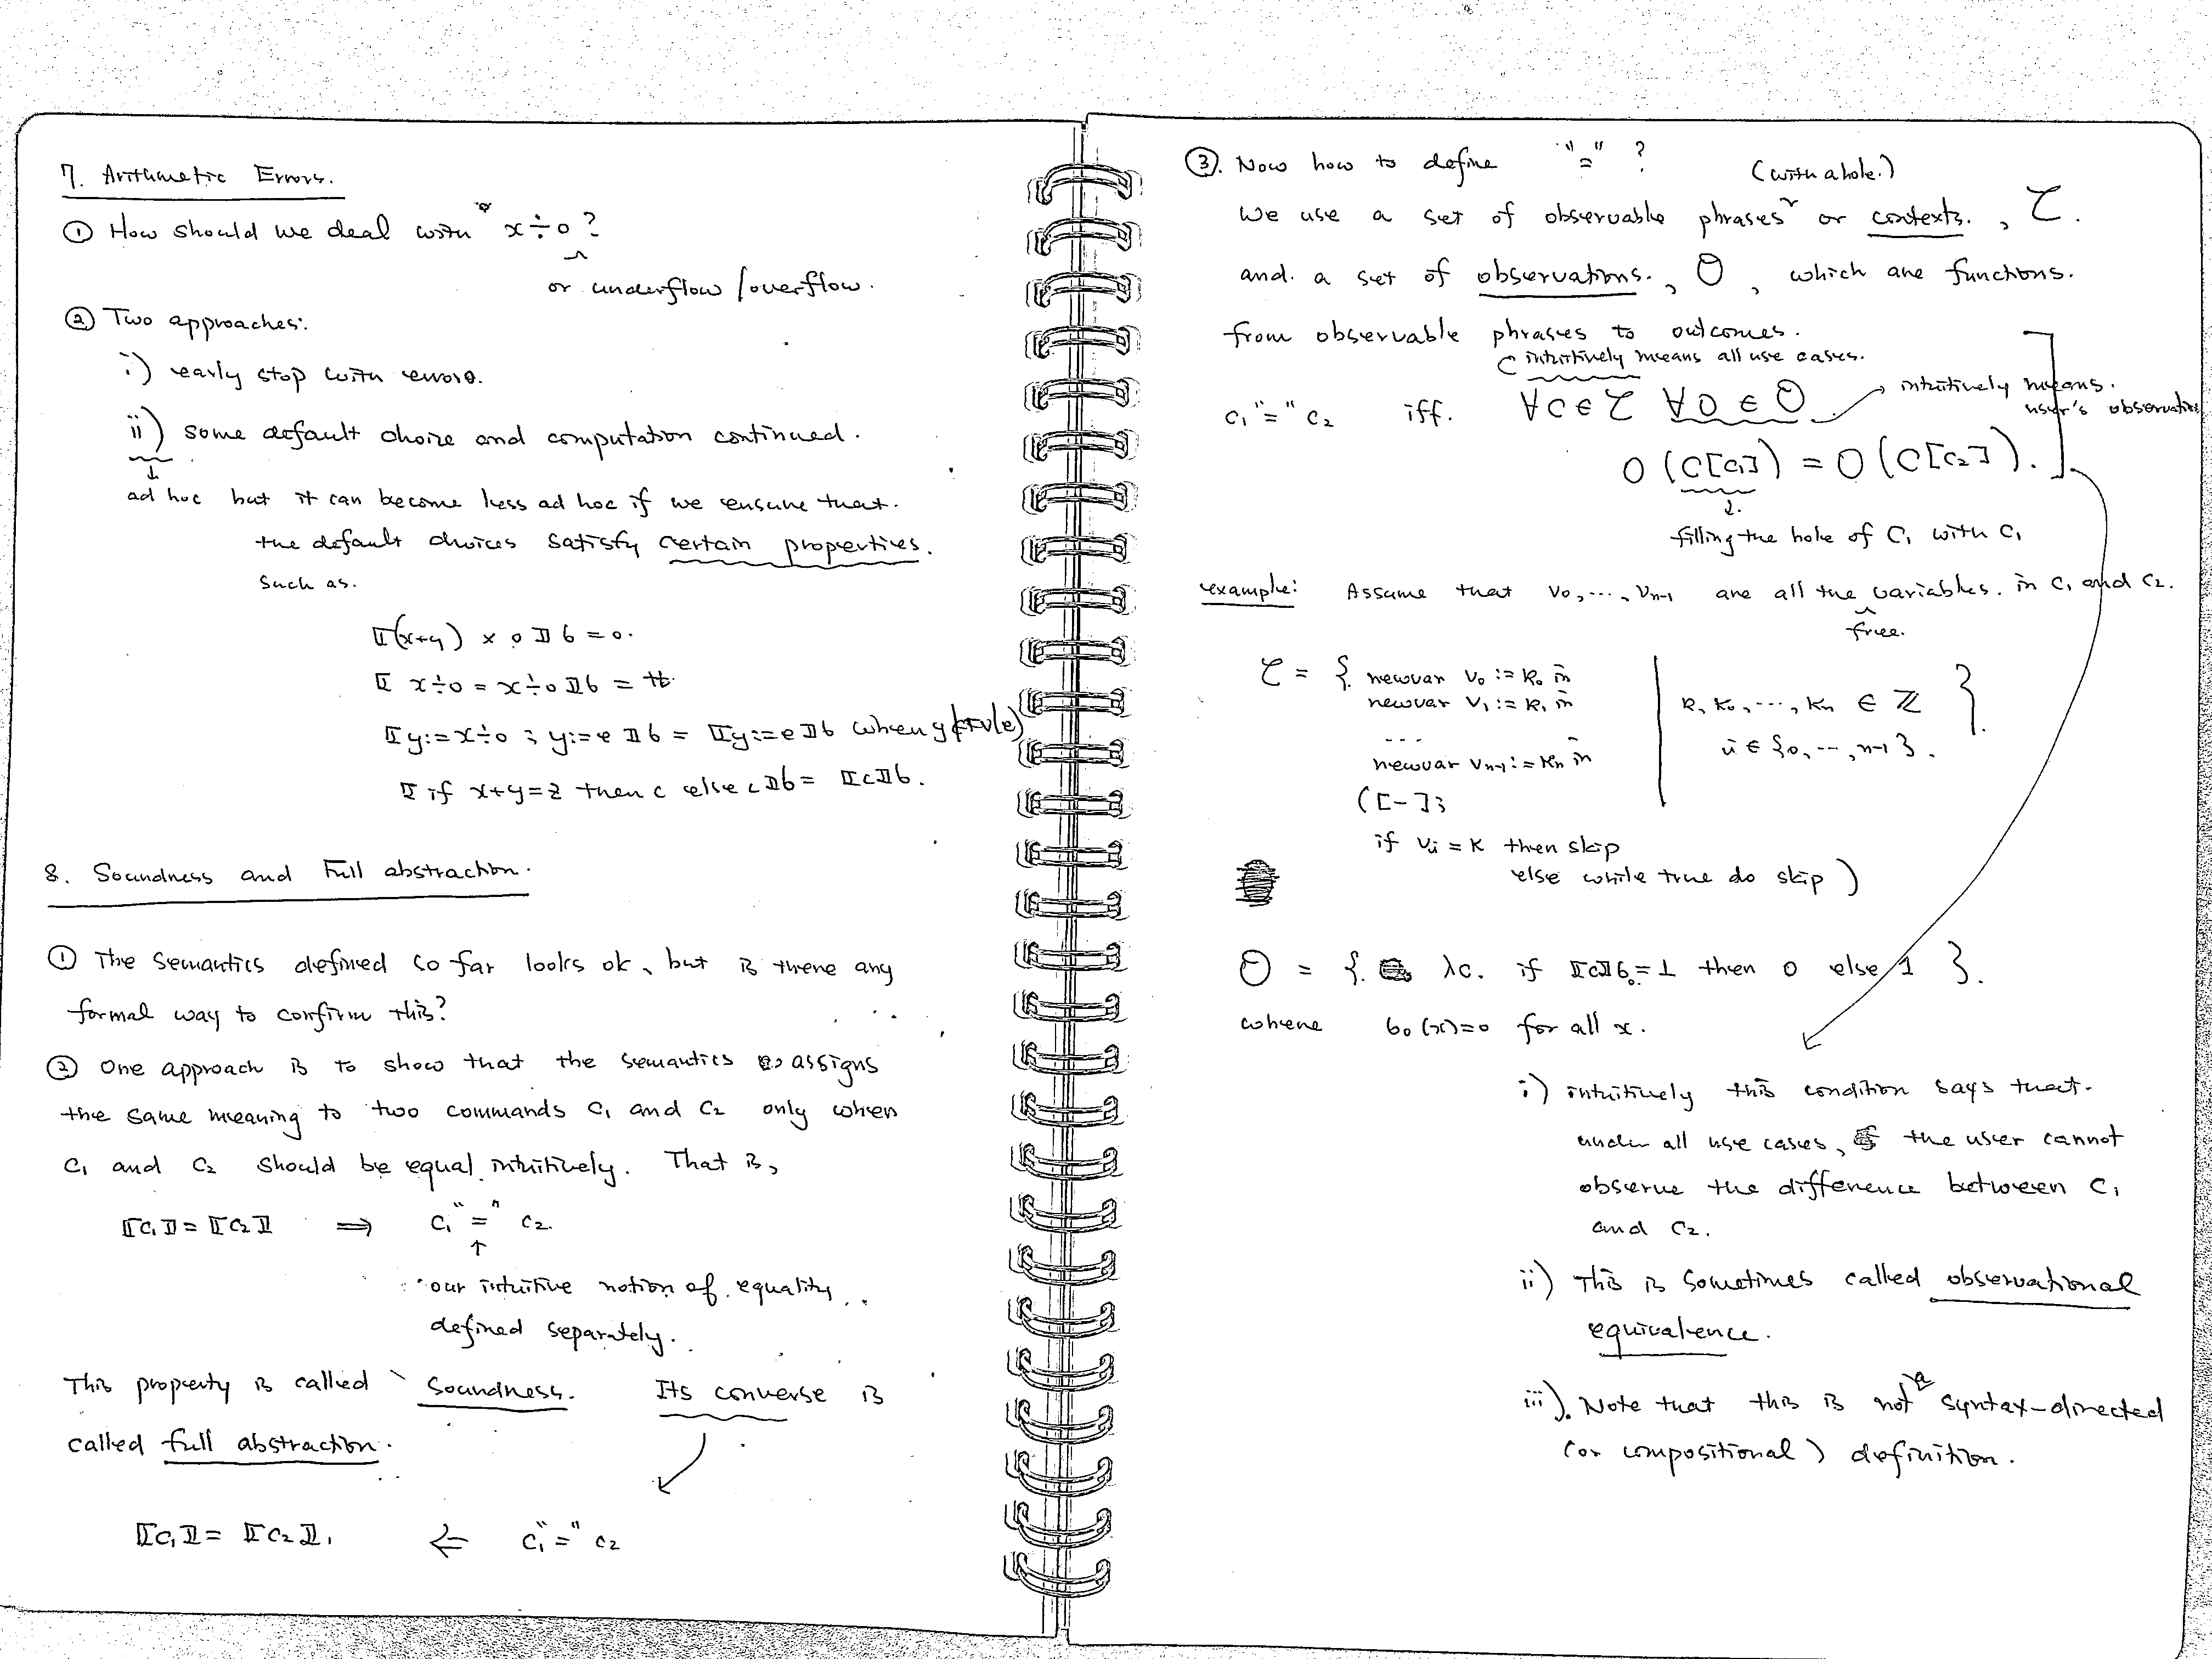 7. Arithmetic Errors.
① How should we deal with "x÷0?
or underflow/overflow.
② Two approaches:
i) early stop with errors.
ii) some default choice and computation continued.
↓
ad hoc but it can become less ad hoc if we ensure that.
the default choices satisfy certain properties.
Such as.
⟦(x+y) × 0⟧6 = 0.
⟦x÷0 = x÷0⟧6 = tt.
⟦y:=x÷0 ; y:=e⟧6 = ⟦y:=e⟧6 when y∉FV(e)
⟦if x+y=z then c else c⟧6 = ⟦c⟧6.
8. Soundness and Full abstraction.
① The semantics defined so far looks ok, but is there any
formal way to confirm this?
② One approach is to show that the semantics assigns
the same meaning to two commands c₁ and c₂ only when
c₁ and c₂ should be equal intuitively. That is,
⟦c₁⟧ = ⟦c₂⟧ ⟹ c₁ "=" c₂.
↑
our intuitive notion of equality,
defined separately.
This property is called soundness. Its converse is
called full abstraction.
⟦c₁⟧ = ⟦c₂⟧. ⇐ c₁ "=" c₂
③. Now how to define "=" ?
(with a hole.)
We use a set of observable phrases or contexts. , C.
and. a set of observations. , O , which are functions.
from observable phrases to outcomes.
intuitively means all use cases.
c₁ "=" c₂ iff. ∀C∈C ∀O∈O. → intuitively means.
user's observation
O (C[c₁]) = O (C[c₂]).
filling the hole of C, with c₁
example: Assume that v₀, ..., vₙ₋₁ are all the variables. in c₁ and c₂.
free.
C = { newvar v₀ := k₀ in
newvar v₁ := k₁ in
...
newvar vₙ₋₁ := kₙ in
([-];
if vᵢ = k then skip
else while true do skip )
| k, k₀, ..., kₙ ∈ ℤ
i ∈ {0, ..., n-1}. }
O = { λc. if ⟦c⟧6₀ = ⊥ then 0 else 1 }.
where 6₀(x)=0 for all x.
i) intuitively this condition says that.
under all use cases, the user cannot
observe the difference between c₁
and c₂.
ii) This is sometimes called observational
equivalence.
iii). Note that this is not a syntax-directed
(or compositional) definition.